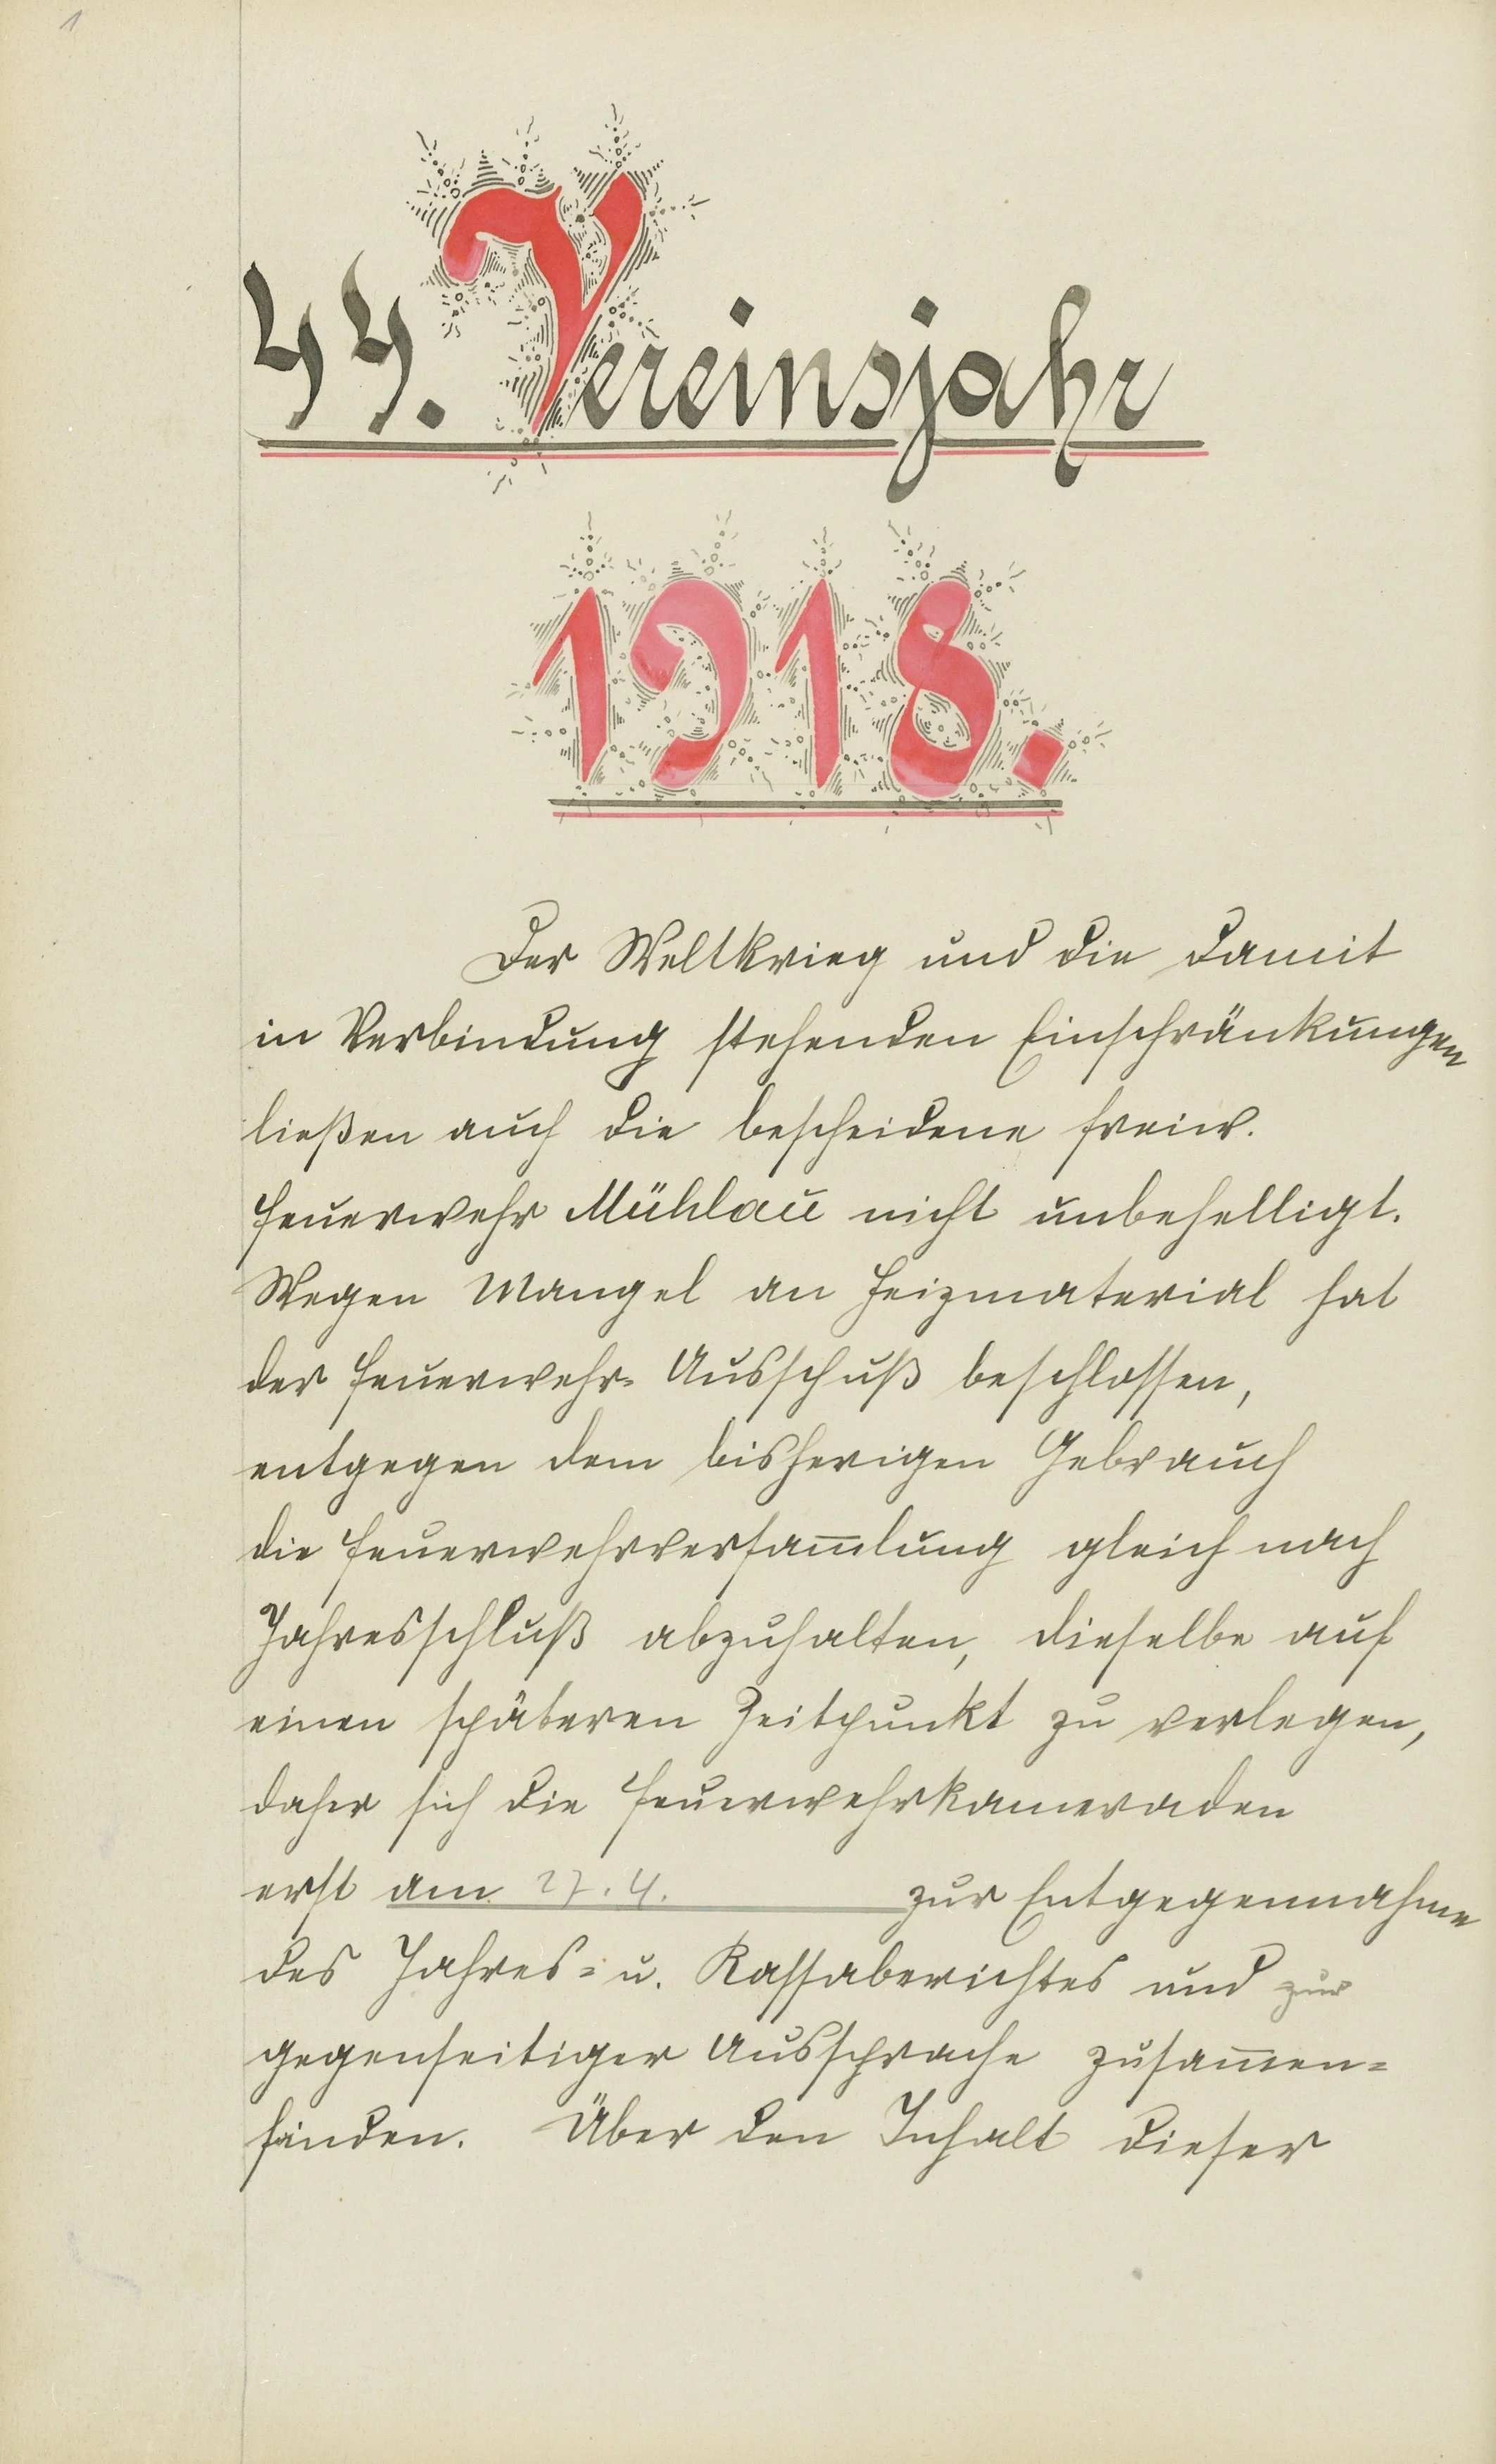 1
44. Vereinsjahr
1918.
Der Weltkrieg und die damit
in Verbindung stehenden Einschränkungen
ließen auch die bescheidene freiw.
Feuerwehr Mühlau nicht unbehelligt.
Wegen Mangel an Heizmaterial hat
der Feuerwehr-Ausschuß beschlossen,
entgegen dem bisherigen Gebrauch
die Feuerwehrversam̅lung gleich nach
Jahresschluß abzuhalten, dieselbe auf
einen späteren Zeitpunkt zu verlegen,
daher sich die Feuerwehrkameraden
erst am 27.4. zur Entgegennahme
des Jahres- u. Kassaberichtes und zur
gegenseitiger Aussprache zusam̅en-
finden. Über den Inhalt dieser